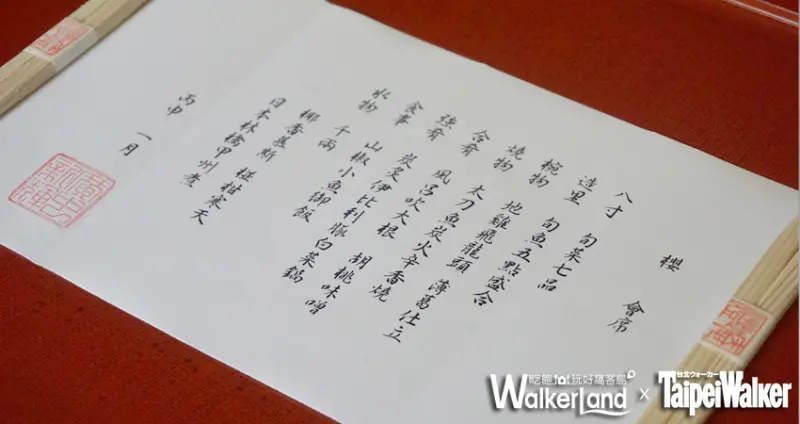 櫻 會席
八寸 旬菜七品
造里 旬魚五點盛合
椀物 地雞飛龍頭 薄葛仕立
燒物 太刀魚炭火辛香燒
合肴 風呂吹大根 胡桃味噌
強肴 炭炙伊比利豚白菜鍋
食事 山椒小魚御飯
水物 千兩
椰香慕斯 椪柑寒天
日本林檎甲州煮
丙申 一月
吃飽fot玩好窩客島
WalkerLand x
台北ウォーカー
TaipeiWalker